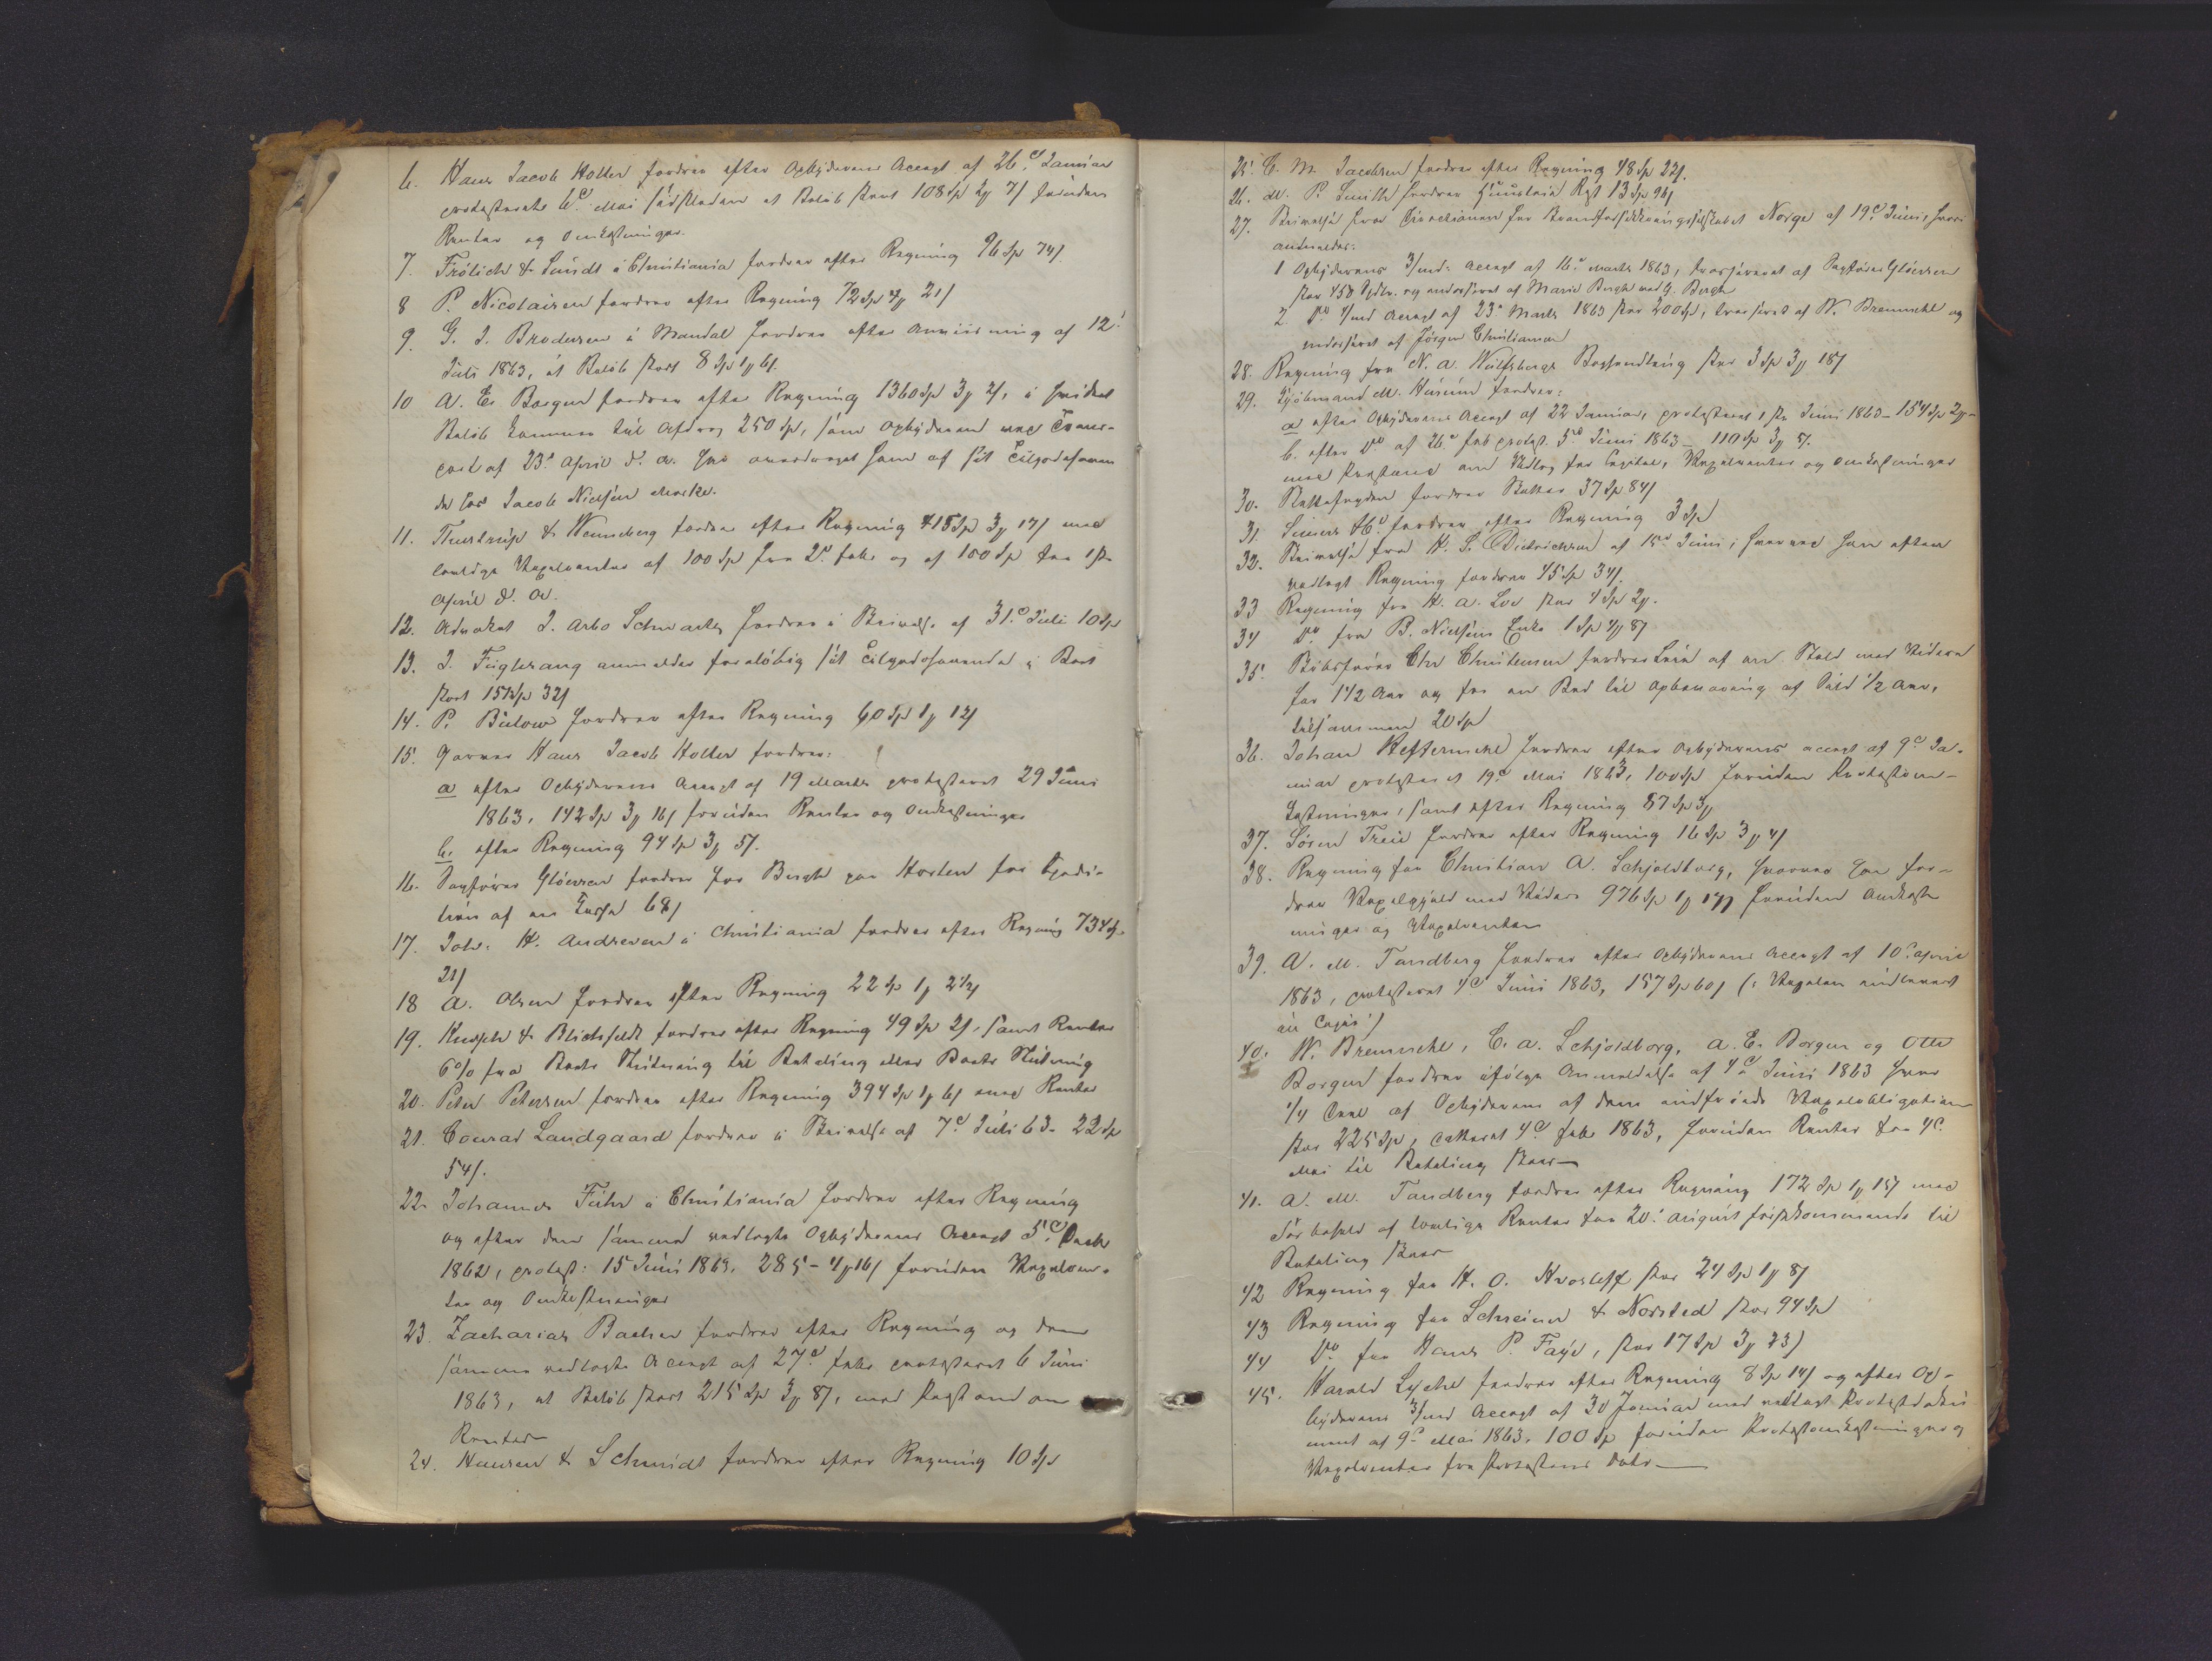 6. Hans Jacob Holler fordrer efter Opbyderens Accept af 26d Januar
protesterede 6d Mai sidstleden et Beløb stort 108 Sp 2 7/ foruden
Renter og Omkostninger.
7. Frölich & Sundt i Christiania fordrer efter Regning 96 Sp 74/
8 P. Nicolaisen fordrer efter Regning 72 Sp 4 21/
9. G. J. Brodersen i Mandal fordrer efter Anviisning af 12'
Juli 1863, et Beløb stort 8 Sp 1 6/.
10 A. E. Borgen fordrer efter Regning 1360 Sp 3 2/, i hvilket
Beløb kommer til Afdrag 250 Sp, som Opbyderen ved Trans-
port af 23d April d. A. har overdraget ham af sit Tilgodehavende
hos Jacob Nielsen
11. & Wenneberg fordrer efter Regning 415 Sp 3 17/ med
lovlige Vexelrenter af 100 Sp fra 2d Febr og af 150 Sp fra 1ste
April d. A.
12. Advokat J. Arbo Schwartz fordrer i Skrivelse af 31d Juli 10 Sp
13. J. Fuglevaag anmelder foreløbig sit Tilgodehavende i Boet
stort 151 Sp 32/
14. P. Bülow fordrer efter Regning 60 Sp 1 12/
15. Garver Hans Jacob Holler fordrer:
a efter Opbyderens Accept af 19 Marts protesteret 29 Juni
1863, 142 Sp 3 16/ foruden Renter og Omkostninger
b. efter Regning 94 Sp 3 5/.
16. Sagfører Gløersen fordrer for Bergh paa Horten for Expedi-
tion af en 68/
17. Joh. H. Andresen i Christiania fordrer efter Regning 734 Sp
21/
18 A. Olsen fordrer efter Regning 22 Sp 1 21/
19. & Blichfeldt fordrer efter Regning 49 Sp 2/, samt Renter
6% fra Boets Slutning til Betaling eller Boets Slutning
20. Peter Petersen fordrer efter Regning 394 Sp 1 6/ med Renter
21. Conrad Landgaard fordrer i Skrivelse af 7d Juli 63. 22 Sp
54/.
22. Johannes Führ i Christiania fordrer efter Regning
og efter den samme vedlagte Opbyderens Accept 5d
1862, protest: 15 Juni 1863. 285 - 4 16/ foruden Vexelren-
ter og Omkostninger
23. Zacharias Bacher fordrer efter Regning og den
samme vedlagte Accept af 27d Febr. protesteret 6 Juni
1863, et Beløb stort 215 Sp 3 8/, med Paastand om
Renter
24. Hansen & Schmidt fordrer efter Regning 10 Sp
25. C. M. Jacobsen fordrer efter Regning 48 Sp 22/.
26. M. P. Smith fordrer Huusleie 13 Sp 96/
27. Skrivelse fra Directionen for Brandforsikringsselskabet Norge af 19d Juni, hvori
anmeldes:
1 Opbyderens 3/mds Accept af 16d Marts 1863, trasseret af Sagfører Gløersen
stor 450 Spdlr. og endosseret af Marie Bergh ved G. Bergh
2 Do 4/md Accept af 23d Marts 1863 stor 200 Sp, trasseret af W. Bremmehl og
endosseret af Jörgen Christiansen
28. Regning fra N. A. Wulfsbergs Boghandling stor 3 Sp 3 18/
29. Kjøbmand M. fordrer:
a efter Opbyderens Accept af 22 Januar, protesteret 1ste Juni 1863 - 154 Sp 2
b. efter Do af 26d Feb protest. 5d Juni 1863 - 110 Sp 3 5/.
med Paastand om Udlæg for Capital, Vexelrenter og Omkostninger
30. Skattefogden fordrer Skatter 37 Sp 84/
31. Siewers & Co fordrer efter Regning 3 Sp
32. Skrivelse fra H. S. Dietrichson af 15d Juni, hvorved han efter
vedlagt Regning fordrer 45 Sp 34/.
33 Regning fra H. A. Lov stor 4 Sp 2.
34 Do fra B. Nielsens Enke 1 Sp 4 8/
35. Skibsfører Chr Christensen fordrer Leie af en Stald med Videre
for 1 1/2 Aar og for en Bod til Opbevaring af Sild 1/2 Aar,
tilsammen 20 Sp
36. Johan Heftermehl fordrer efter Opbyderens Accept af 9d Ja-
nuar protesteret 19d Mai 1863, 100 Sp foruden Protestom-
kostninger, samt efter Regning 87 Sp 3
37. Søren Treu fordrer efter Regning 16 Sp 3 4/
38. Regning fra Christian A. Schjoldborg, hvorved han for-
drer Vexelgjæld med Videre 976 Sp 1 17/ foruden Omkost-
ninger og Vexelrenter
39. A. M. Tandberg fordrer efter Opbyderens Accept af 10d April
1863, protesteret 4d Juni 1863, 157 Sp 60/ (: Vexelen indleveret
in Copia:)
40. W. Bremmehl, C. A. Schjoldborg, A. E. Borgen og Otto
Borgen fordrer ifølge Anmeldelse af 4d Juni 1863 hver
1/4 Deel af Opbyderens af dem indfriede Vexelobligation
stor 225 Sp, dateret 4d Feb 1863, foruden Renter fra 4d
Mai til Betaling skeer
41. A. M. Tandberg fordrer efter Regning 172 Sp 1 15/ med
Forbehold af lovlige Renter fra 20' August førstkommende til
Betaling skeer
42 Regning fra H. O. Hvosleff stor 24 Sp 1 8/
43 Regning fra Schreiner & Norsted stor 94 Sp
44 Do fra Hans P. Faye, stor 17 Sp 3 23/
45. Harald Lyche fordrer efter Regning 8 Sp 14/ og efter Op-
byderens 3/md Accept af 30 Januar med vedlagt Protestdoku-
ment af 9d Mai 1863. 100 Sp foruden Protestomkostninger og
Vexelrenter fra Protestens Dato